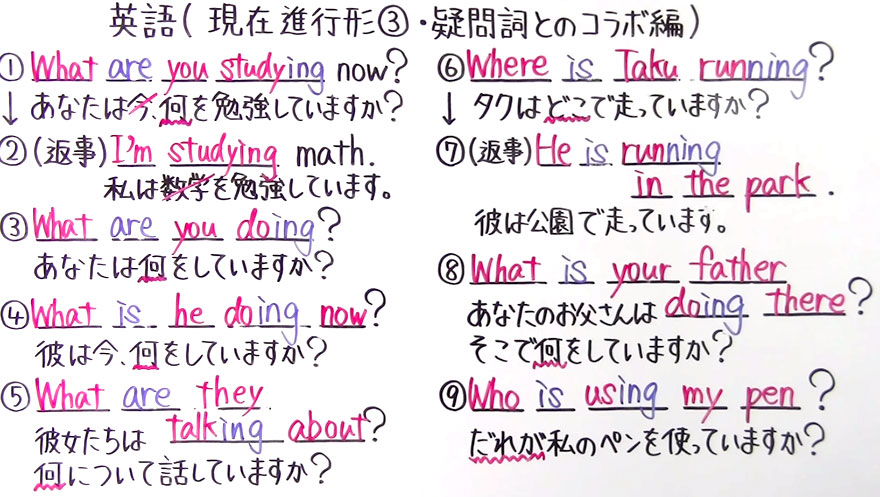 英語(現在進行形③・疑問詞とのコラボ編)
① What are you studying now?
↓ あなたは今、何を勉強していますか?
② (返事) I'm studying math.
私は数学を勉強しています。
③ What are you doing?
あなたは何をしていますか?
④ What is he doing now?
彼は今、何をしていますか?
⑤ What are they
彼女たちは talking about?
何について話していますか?
⑥ Where is Taku running?
↓ タクはどこで走っていますか?
⑦ (返事) He is running
in the park.
彼は公園で走っています。
⑧ What is your father
あなたのお父さんは doing there?
そこで何をしていますか?
⑨ Who is using my pen?
だれが私のペンを使っていますか?